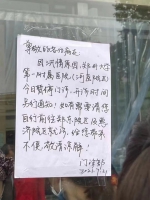 尊敬的各位病友:
因汛情原因,郑州大学
第一附属医院(河医院区)
今日暂停门诊,开诊时间
另行通知;如有需要请您
自行前往郑东院区及惠
济院区就诊,给您带来
不便,敬请谅解!
门诊部
2021.7.21